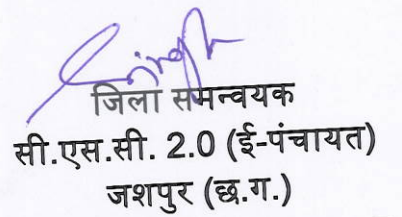 जिला समन्वयक
सी.एस.सी. 2.0 (ई-पंचायत)
जशपुर (छ.ग.)